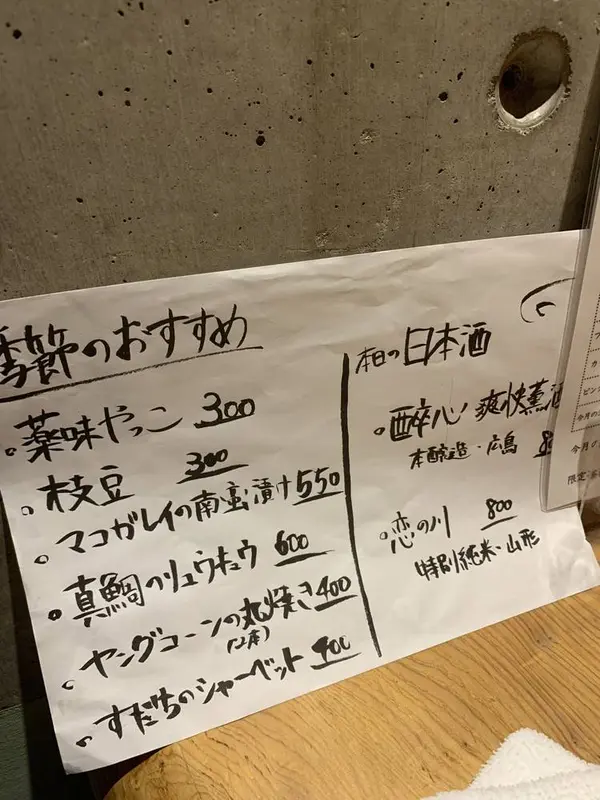 季節のおすすめ
薬味やっこ 300
枝豆 300
マコガレイの南蛮漬け 550
真鯛のリュウキュウ 600
ヤングコーンの丸焼き 400
(2本)
すだちのシャーベット 400
本日の日本酒
酔心 爽快薫酒
本醸造・広島
恋の川 800
特別純米・山形
今月の
限定